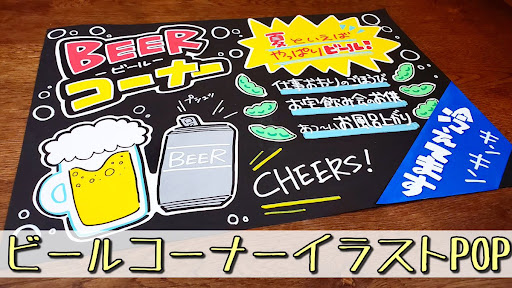 BEER
ービールー
コーナー
夏といえば
やっぱりビール!
仕事おわりのごほうび
お宅飲み会のお供
あつ〜いお風呂上がり
プシュッ
BEER
CHEERS!
キンキン
冷えてます
ビールコーナーイラストPOP